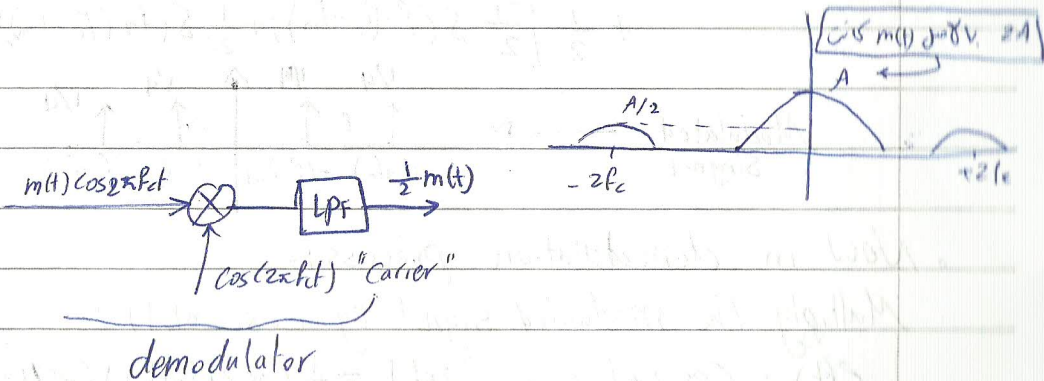 m(t) 2A
A
A/2
-2fc
+2fc
m(t) cos2πfct
1/2 m(t)
LPF
cos(2πfct) "Carier"
demodulator